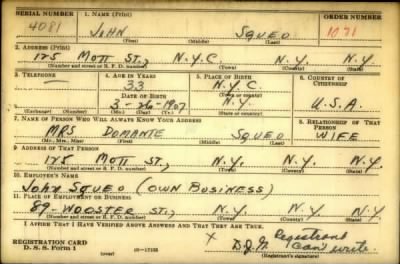 SERIAL NUMBER 1. NAME (Print) ORDER NUMBER
4081 JOHN SQUEO 1071
(First) (Middle) (Last)
2. ADDRESS (Print)
125 MOTT ST., N.Y.C. N.Y. N.Y.
(Number and street or R. F. D. number) (Town) (County) (State)
3. TELEPHONE 4. AGE IN YEARS 5. PLACE OF BIRTH 6. COUNTRY OF CITIZENSHIP
— 33 N.Y.C.
DATE OF BIRTH (Town or county)
3-26-1907 N.Y. U.S.A.
(Exchange) (Number) (Mo.) (Day) (Yr.) (State or country)
7. NAME OF PERSON WHO WILL ALWAYS KNOW YOUR ADDRESS 8. RELATIONSHIP OF THAT PERSON
MRS DOMANTE SQUEO WIFE
(Mr., Mrs., Miss) (First) (Middle) (Last)
9. ADDRESS OF THAT PERSON
125 MOTT ST., N.Y. N.Y. N.Y.
(Number and street or R. F. D. number) (Town) (County) (State)
10. EMPLOYER'S NAME
JOHN SQUEO (OWN BUSINESS)
11. PLACE OF EMPLOYMENT OR BUSINESS
89-WOOSTER ST., N.Y. N.Y. N.Y.
(Number and street or R. F. D. number) (Town) (County) (State)
I AFFIRM THAT I HAVE VERIFIED ABOVE ANSWERS AND THAT THEY ARE TRUE.
REGISTRATION CARD X Registrant
D. S. S. Form 1 16-17105 can't write
(Registrant's signature)